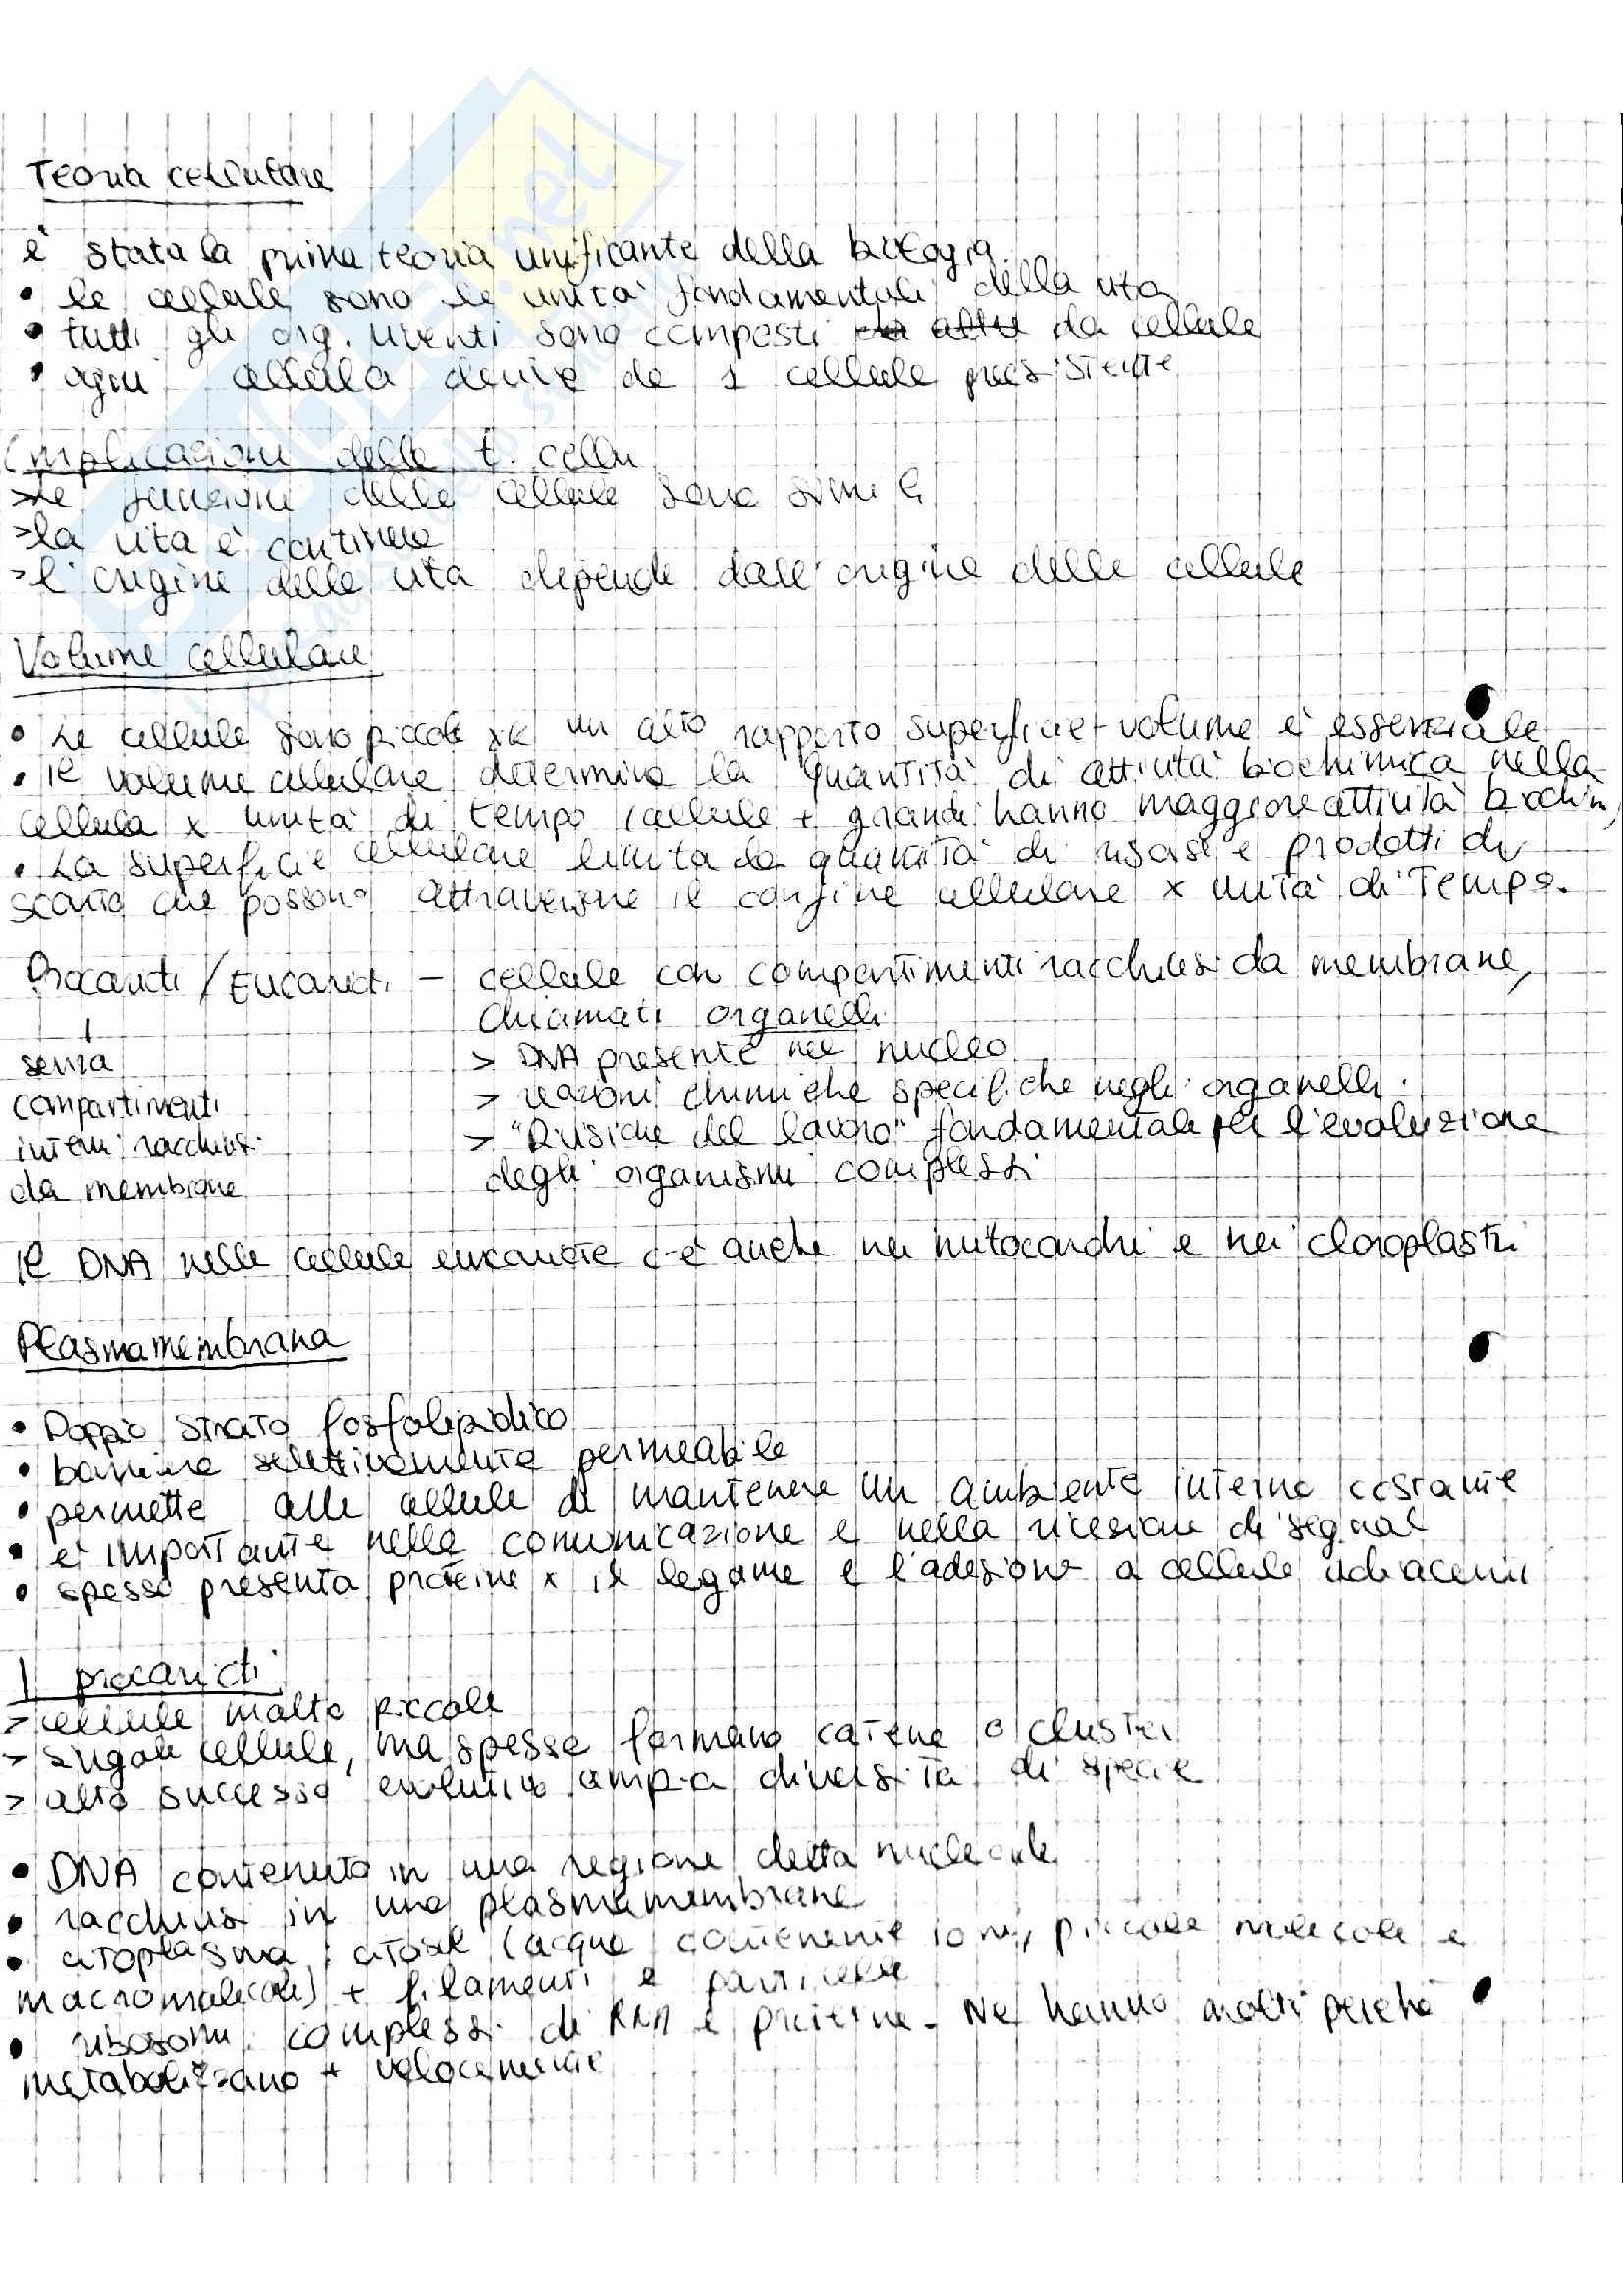 Teoria cellulare
è stata la prima teoria unificante della biologia
• le cellule sono le unità fondamentali della vita
• tutti gli org. viventi sono composti da altre da cellule
• ogni cellula deriva da 1 cellula preesistente
Implicazioni della t. cellu
> Le funzioni delle cellule sono simili
> la vita è continua
> l'origine della vita dipende dall'origine delle cellule
Volume cellulare
• Le cellule sono piccole xk un alto rapporto superficie-volume è essenziale
• Il volume cellulare determina la quantità di attività biochimica nella
cellula x unità di tempo (cellule + grandi hanno maggiore attività biochim)
• La superficie cellulare limita la quantità di risorse e prodotti di
scarto che possono attraversare il confine cellulare x unità di tempo.
Procarioti / Eucarioti - cellule con compartimenti racchiusi da membrane,
chiamati organelli
senza
> DNA presente nel nucleo
compartimenti
> reazioni chimiche specifiche negli organelli
interni racchiusi
> "Divisione del lavoro" fondamentale per l'evoluzione
da membrane
degli organismi complessi
Il DNA nelle cellule eucariote c'è anche nei mitocondri e nei cloroplasti
Plasmamembrana
• Doppio strato fosfolipidico
• barriera selettivamente permeabile
• permette alle cellule di mantenere un ambiente interno costante
• è importante nella comunicazione e nella ricezione di segnali
• spesso presenta proteine x il legame e l'adesione a cellule adiacenti
I procarioti
> cellule molto piccole
> singole cellule, ma spesso formano catene o cluster
> alto successo evolutivo ampia diversità di specie
• DNA contenuto in una regione detta nucleoide
• racchiusi in una plasmamembrana
• citoplasma: citosol (acqua contenente ioni, piccole molecole e
macromolecole) + filamenti e particelle
• ribosomi: complessi di RNA e proteine. Ne hanno molti perché
metabolizzano + velocemente